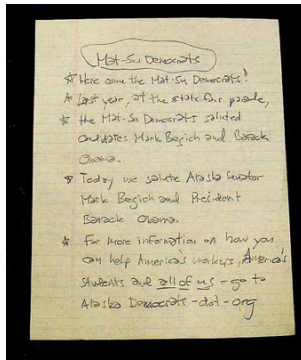 Mat-Su Democrats
* Here come the Mat-Su Democrats!
* Last year, at the state fair parade,
* the Mat-Su Democrats saluted
candidates Mark Begich and Barack
Obama.
* Today we salute Alaska Senator
Mark Begich and President
Barack Obama.
* For more information on how you
can help America's workers, America's
students and all of us - go to
Alaska Democrats - dot - org